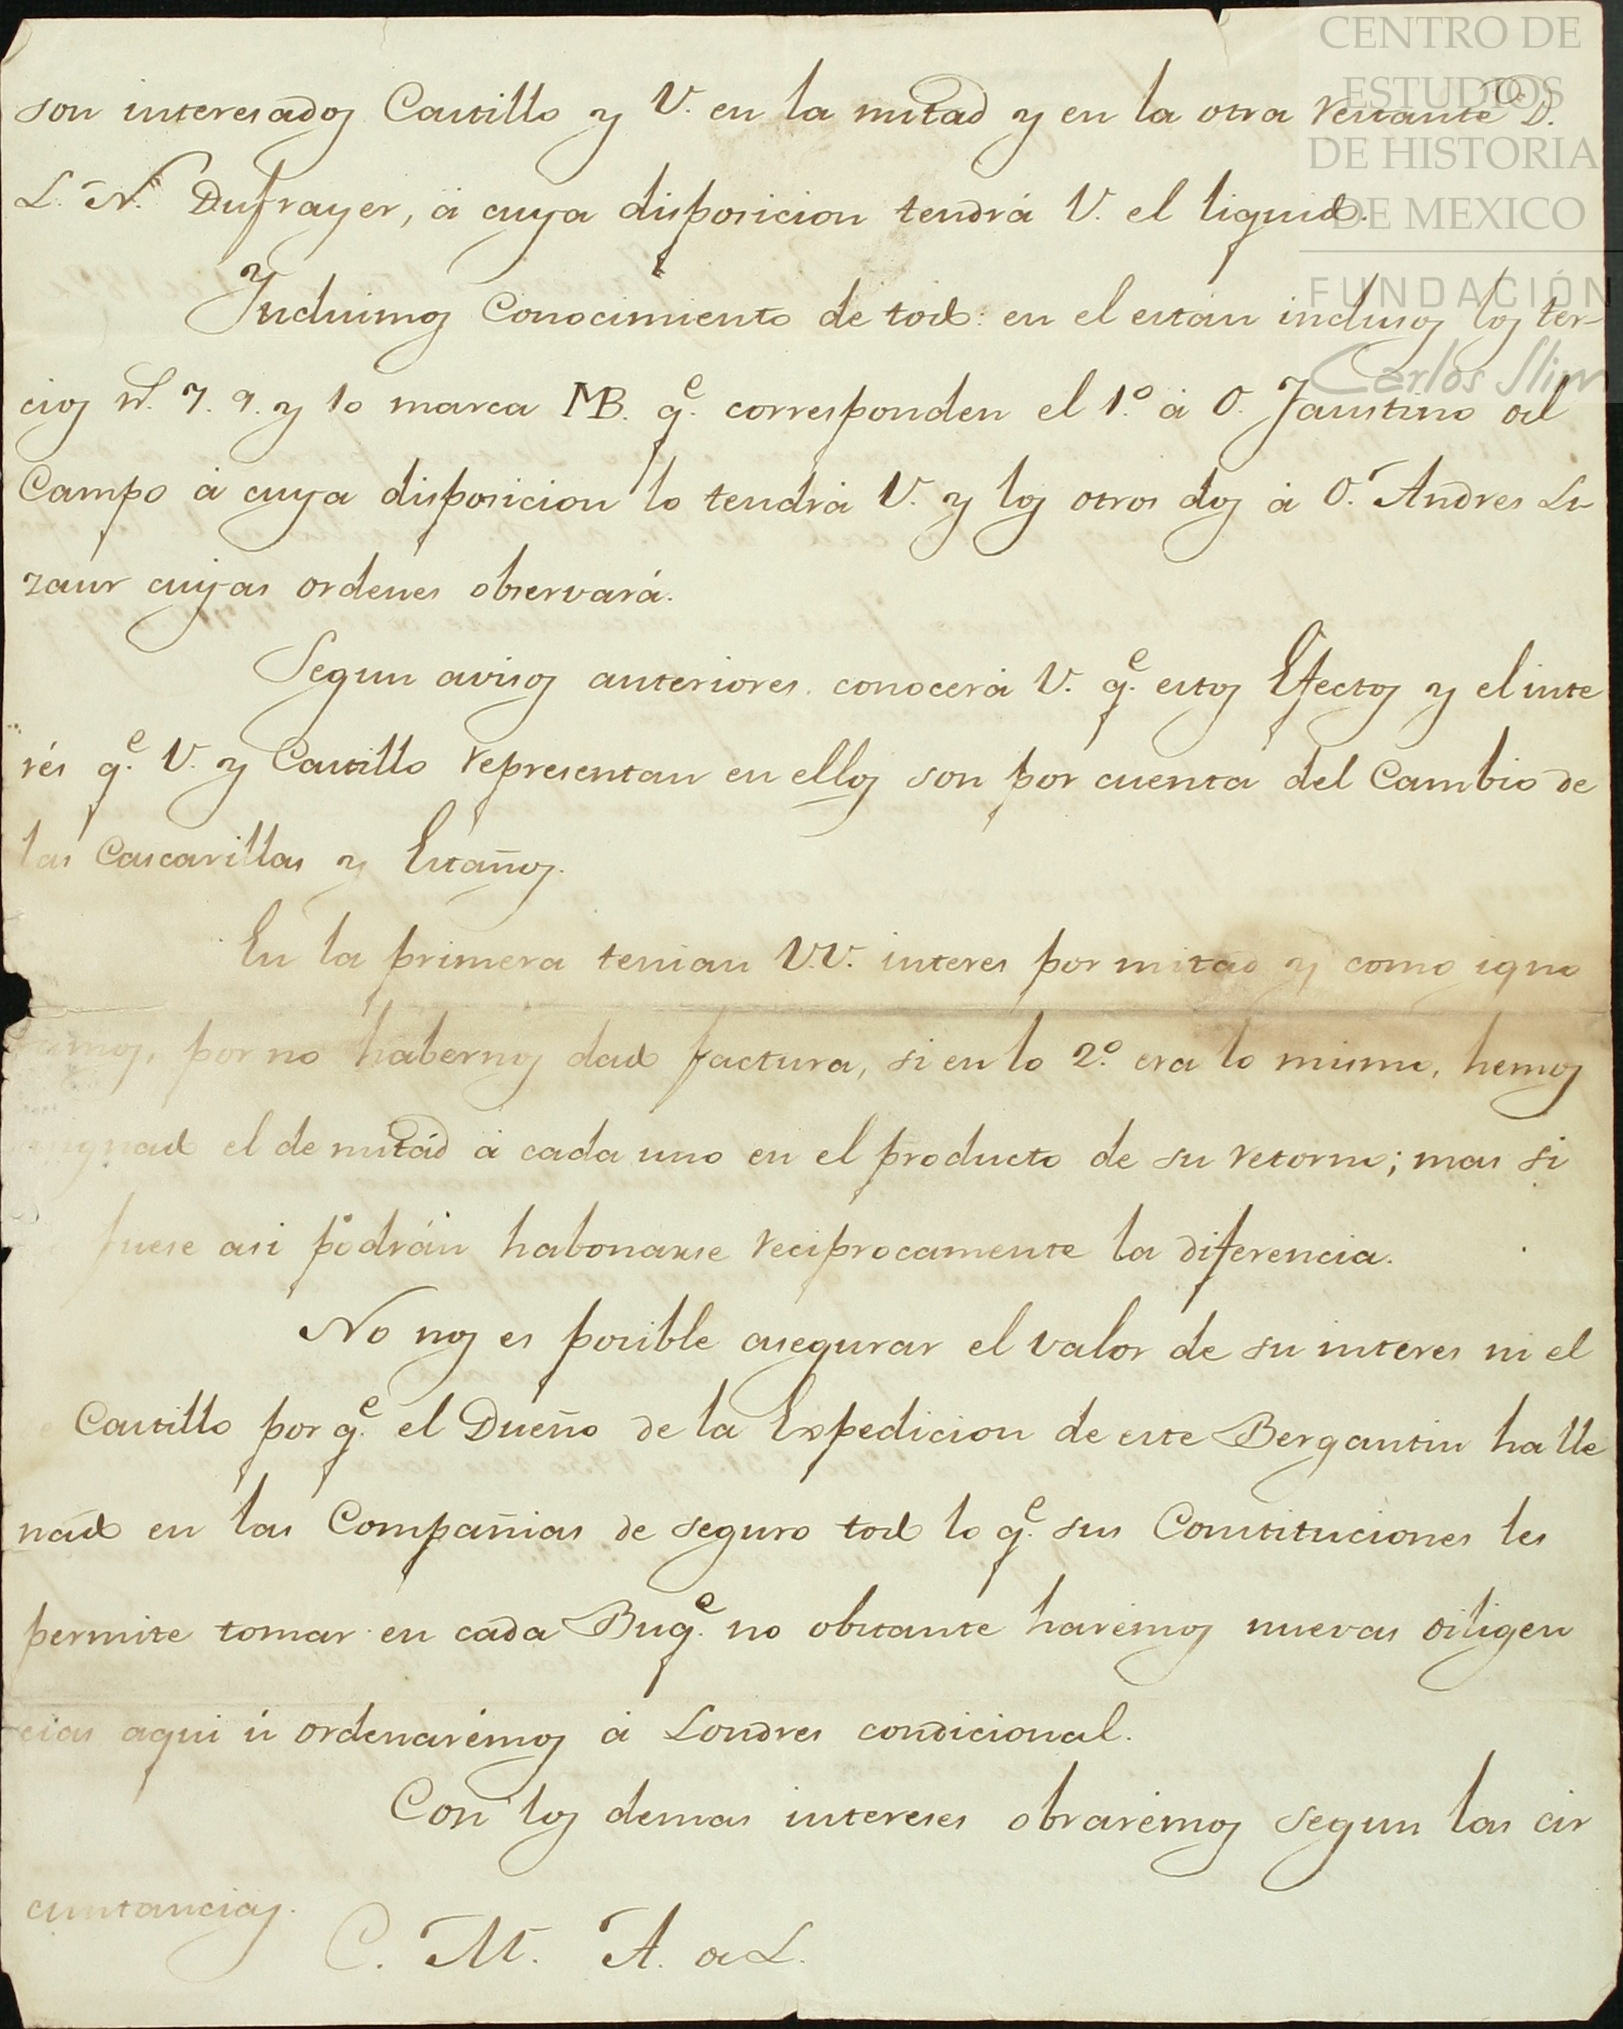 CENTRO DE
ESTUDIOS
DE HISTORIA
DE MEXICO
FUNDACIÓN
Carlos Slim
son interesados Castillo y V. en la mitad y en la otra restante D.
L. N. Dufrayer, á cuya disposicion tendrá V. el liquido.
Incluimos Conocimiento de todo: en el estan inclusos los ter-
cios nº. 7. 9. y 10 marca MB. qe. corresponden el 1º. á D. Faustino del
Campo á cuya disposicion lo tendrá V. y los otros dos á D. Andres Lu
zaur cuyas ordenes observará.
Segun avisos anteriores conocerá V. qe. estos Efectos y el inte
rés qe. V. y Castillo representan en ellos son por cuenta del Cambio de
las Cascarillas y Estaños.
En la primera tenian V.V. interes por mitad y como igno
ramos, por no habernos dado factura, si en lo 2º. era lo mismo, hemos
el de mitád á cada uno en el producto de su retorno; mas si
fuese asi podrán habonarse reciprocamente la diferencia.
No nos es posible asegurar el valor de su interes ni el
Castillo por qe. el Dueño de la Expedicion de este Bergantin ha lle
nado en las Compañias de seguro todo lo qe. sus Constituciones les
permite tomar en cada Buqe. no obstante harémos nuevas diligen
cias aqui ú ordenarémos á Londres condicional.
Con los demas intereses obrarémos segun las cir
cunstancias.
C. M. A. al.